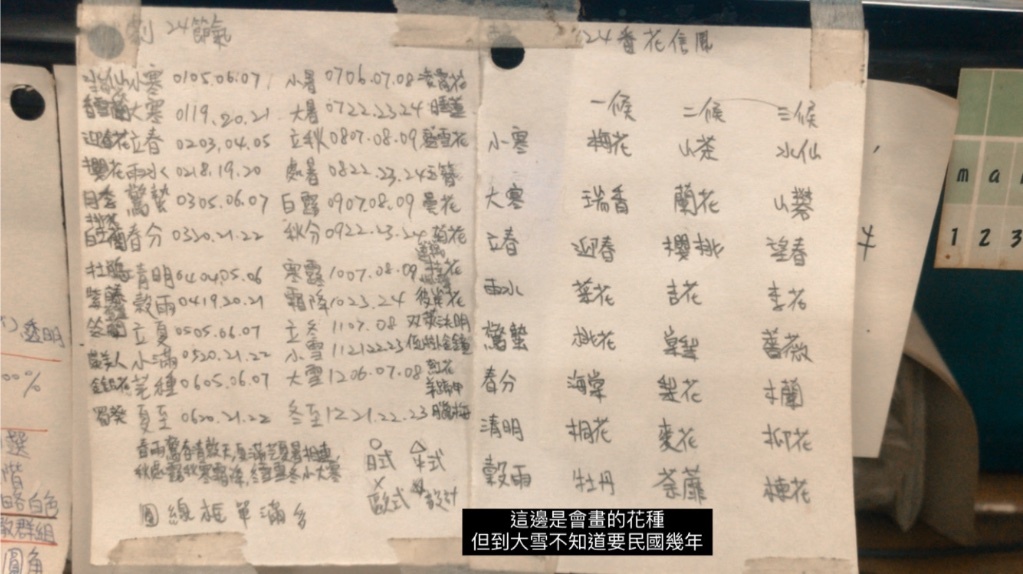 24節氣
水仙 小寒 0105.06.07 小暑 0706.07.08 凌霄花
大寒 0119.20.21 大暑 0722.23.24 睡蓮
迎春花 立春 0203.04.05 立秋 0807.08.09 藍雪花
櫻花 雨水 0218.19.20 處暑 0822.23.24 玉簪
月季 驚蟄 0305.06.07 白露 0907.08.09 曇花
春分 0320.21.22 秋分 0922.23.24 菊花
牡鵑 清明 0404.05.06 寒露 1007.08.09
紫藤 穀雨 0419.20.21 霜降 1023.24
立夏 0505.06.07 立冬 1107.08
虞美人 小滿 0520.21.22 小雪 1121.22.23
芒種 0605.06.07 大雪 1206.07.08
蜀葵 夏至 0620.21.22 冬至 1221.22.23 臘梅
春雨驚春清穀天,夏滿芒夏暑相連,
秋處露秋寒霜降,冬雪雪冬小大寒
日式
歐式 設計
圓線框單滿多
24番花信風
一候 二候 三候
小寒 梅花 山茶 水仙
大寒 瑞香 蘭花 山礬
立春 迎春 櫻桃 望春
雨水 菜花 杏花 李花
驚蟄 桃花 棠梨 薔薇
春分 海棠 梨花 木蘭
清明 桐花 麥花 柳花
穀雨 牡丹 荼蘼 楝花
透明
00%
選
階
略白色
散群組
圓角
mar
1 2 3
這邊是會畫的花種
但到大雪不知道要民國幾年